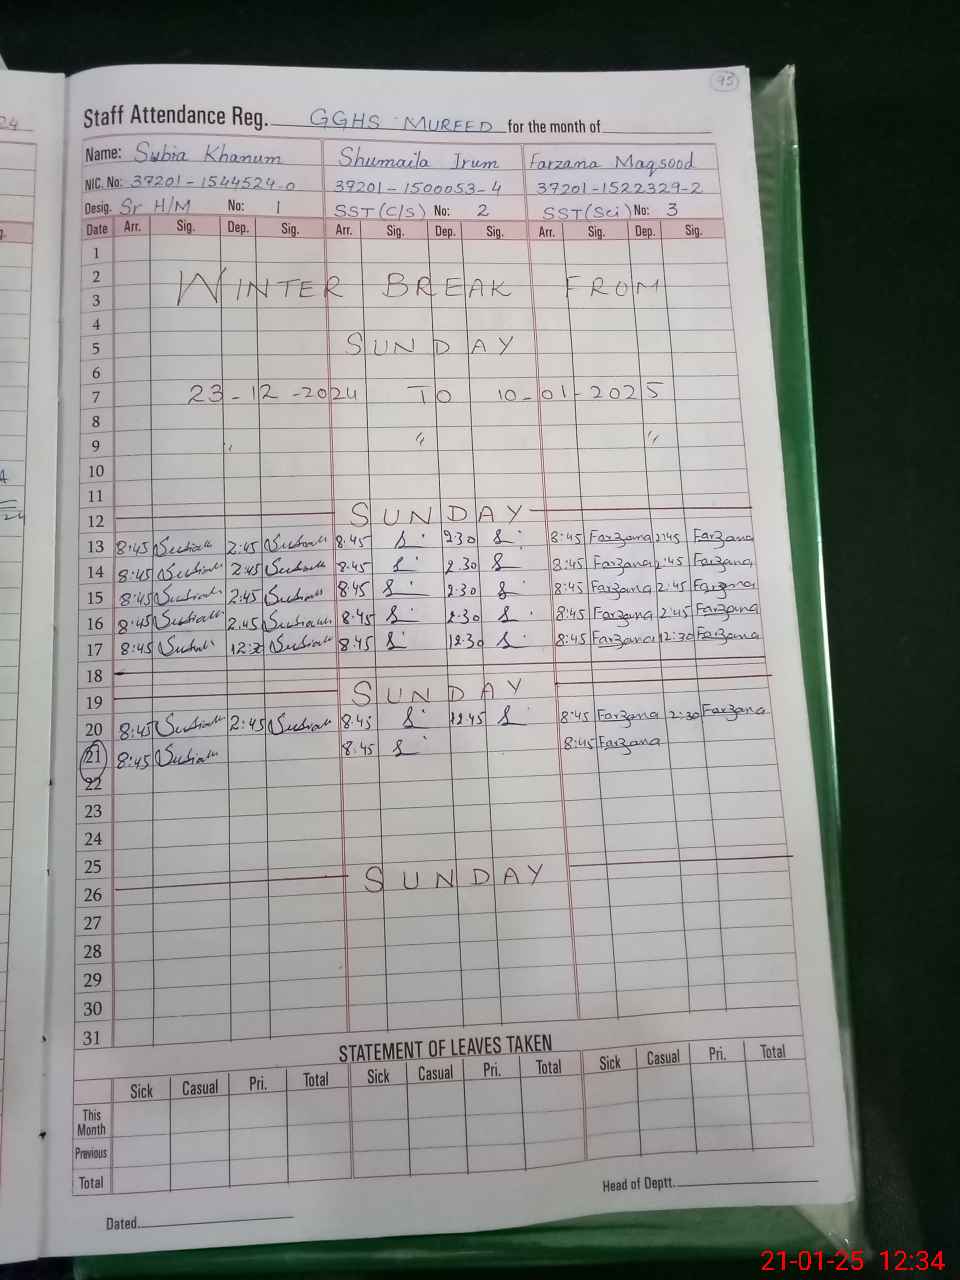 95
24
Staff Attendance Reg. GGHS MUREED for the month of
Name: Subia Khanum Shumaila Irum Farzana Maqsood
NIC. No: 37201-1544524-0 37201-1500053-4 37201-1522329-2
Desig. Sr H/M No: 1 SST(C/S) No: 2 SST(Sci) No: 3
Date Arr. Sig. Dep. Sig. Arr. Sig. Dep. Sig. Arr. Sig. Dep. Sig.
1
2
WINTER BREAK FROM
3
4
5 SUNDAY
6
7 23-12-2024 TO 10-01-2025
8
9 " " "
10
11
12 SUNDAY
13 8:45 2:45 8:45 2:30 8:45 Farzana 2:45 Farzana
14 8:45 2:45 8:45 2:30 8:45 Farzana 2:45 Farzana
15 8:45 2:45 8:45 2:30 8:45 Farzana 2:45 Farzana
16 8:45 2:45 8:45 2:30 8:45 Farzana 2:45 Farzana
17 8:45 8:45 12:30 8:45 Farzana 12:30 Farzana
18
19 SUNDAY
20 8:45 2:45 8:45 8:45 Farzana 2:30 Farzana
21 8:45 8:45 8:45 Farzana
22
23
24
25
26 SUNDAY
27
28
29
30
31
STATEMENT OF LEAVES TAKEN
Sick Casual Pri. Total Sick Casual Pri. Total Sick Casual Pri. Total
This Month
Previous
Total
Head of Deptt.
Dated
21-01-25 12:34